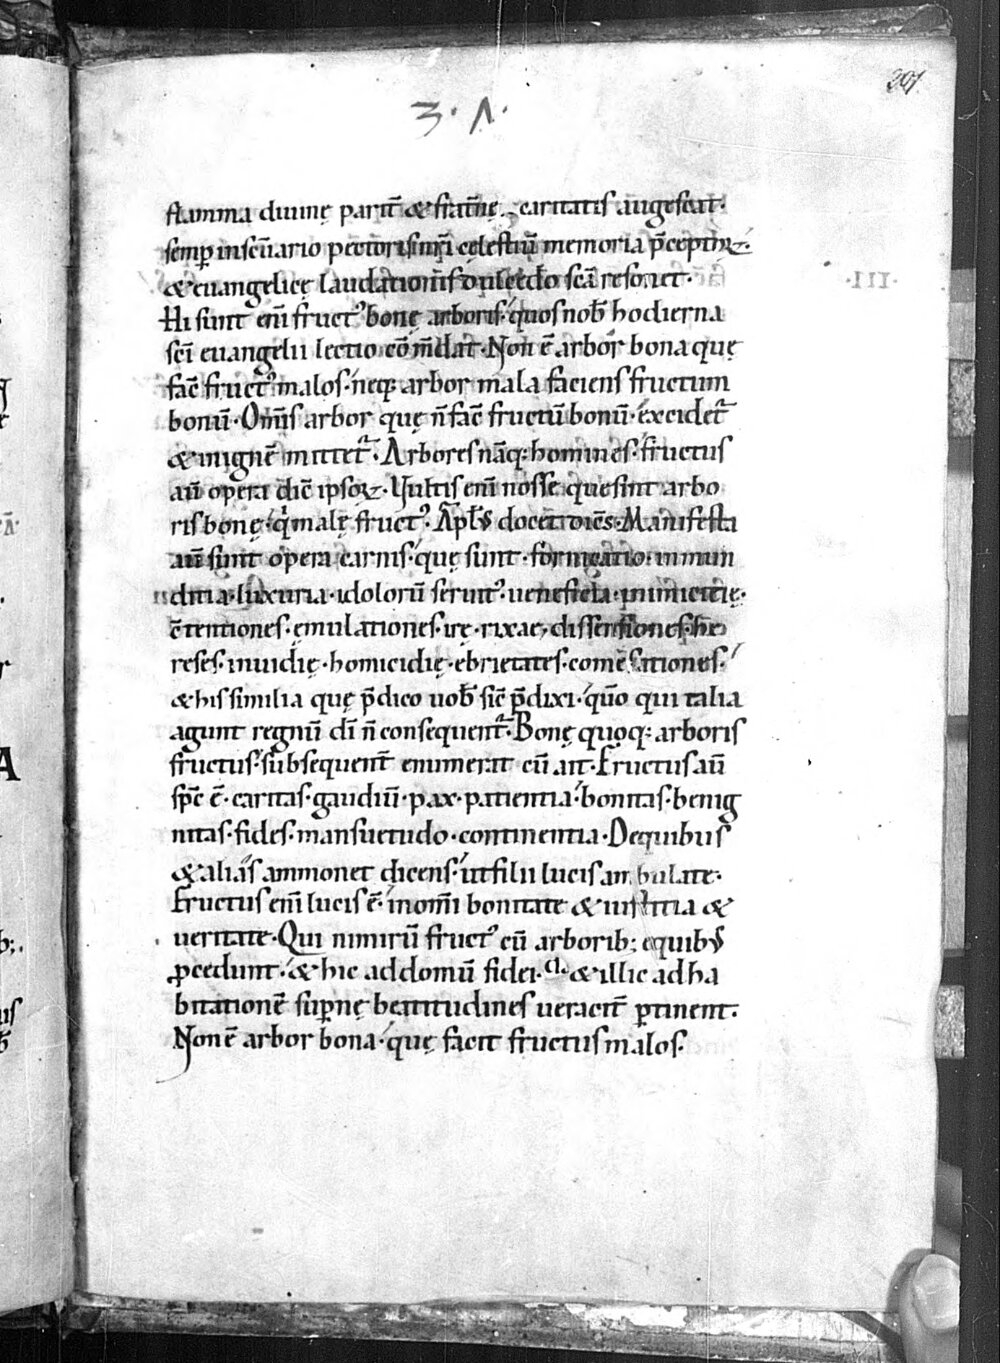 207
3 · Λ ·
flamma diuinę parit̄ & frat̄nę caritatis augescat.
semp̱ in scū̄ario pectoris nr̄i cęlestiū memoria p̄ceptoꝝ.
& euangelicę laudationis dulcedo scā resonet.
Hi sunt eni᷒ fruct᷒ bonę arboris. quos nob̄ hodierna
sc̄i euangelii lectio cōm̄dat. Non ē arbor bona quę
fac̄ fruct᷒ malos. neq; arbor mala faciens fructum
bonū. Om̄is arbor quę n̄ fac̄ fructū bonū. excidet᷑
& in ignē mittet᷑. Arbores nāq; homines. fructus
aū opera dic̄ ipsoꝝ. Vultis eni᷒ nosse que sint arbo
ris bonę. q̍ malę fruct᷒. Apl̄s docet oīes. Manifesta
aū sunt opera carnis. quę sunt. fornicatio. inmun
ditia. luxuria. idolorū seruit᷒. ueneficia. inimicitię.
c̄tentiones. ęmulationes. irę. rixae, dissensiones. he
reses. inuidię. homicidię. ebrietates. comesationes.
& his similia quę p̄dico uob̄ sic̄ p̄dixi. qūo qui talia
agunt regnū dī n̄ consequent᷑. Bonę quoq; arboris
fructus. subsequent̄ enumerat cū ait. Fructus aū
sp̄c ē. caritas. gaudiū. pax. patientia. bonitas. benig
nitas. fides. mansuetudo. continentia. De quibus
& alias ammonet dicens. ut filii lucis ambulate.
Fructus eni᷒ lucis ē. in om̄i bonitate & iustitia &
ueritate. Qui nimirū fruct᷒ cū arborib; e quib᷒
ꝓcedunt. & hic ad domū fidei. & illic ad ha
bitationē sup̱nę beatitudines ueracit̄ ꝑtinent.
Non ē arbor bona. quę facit fructus malos.
·III·